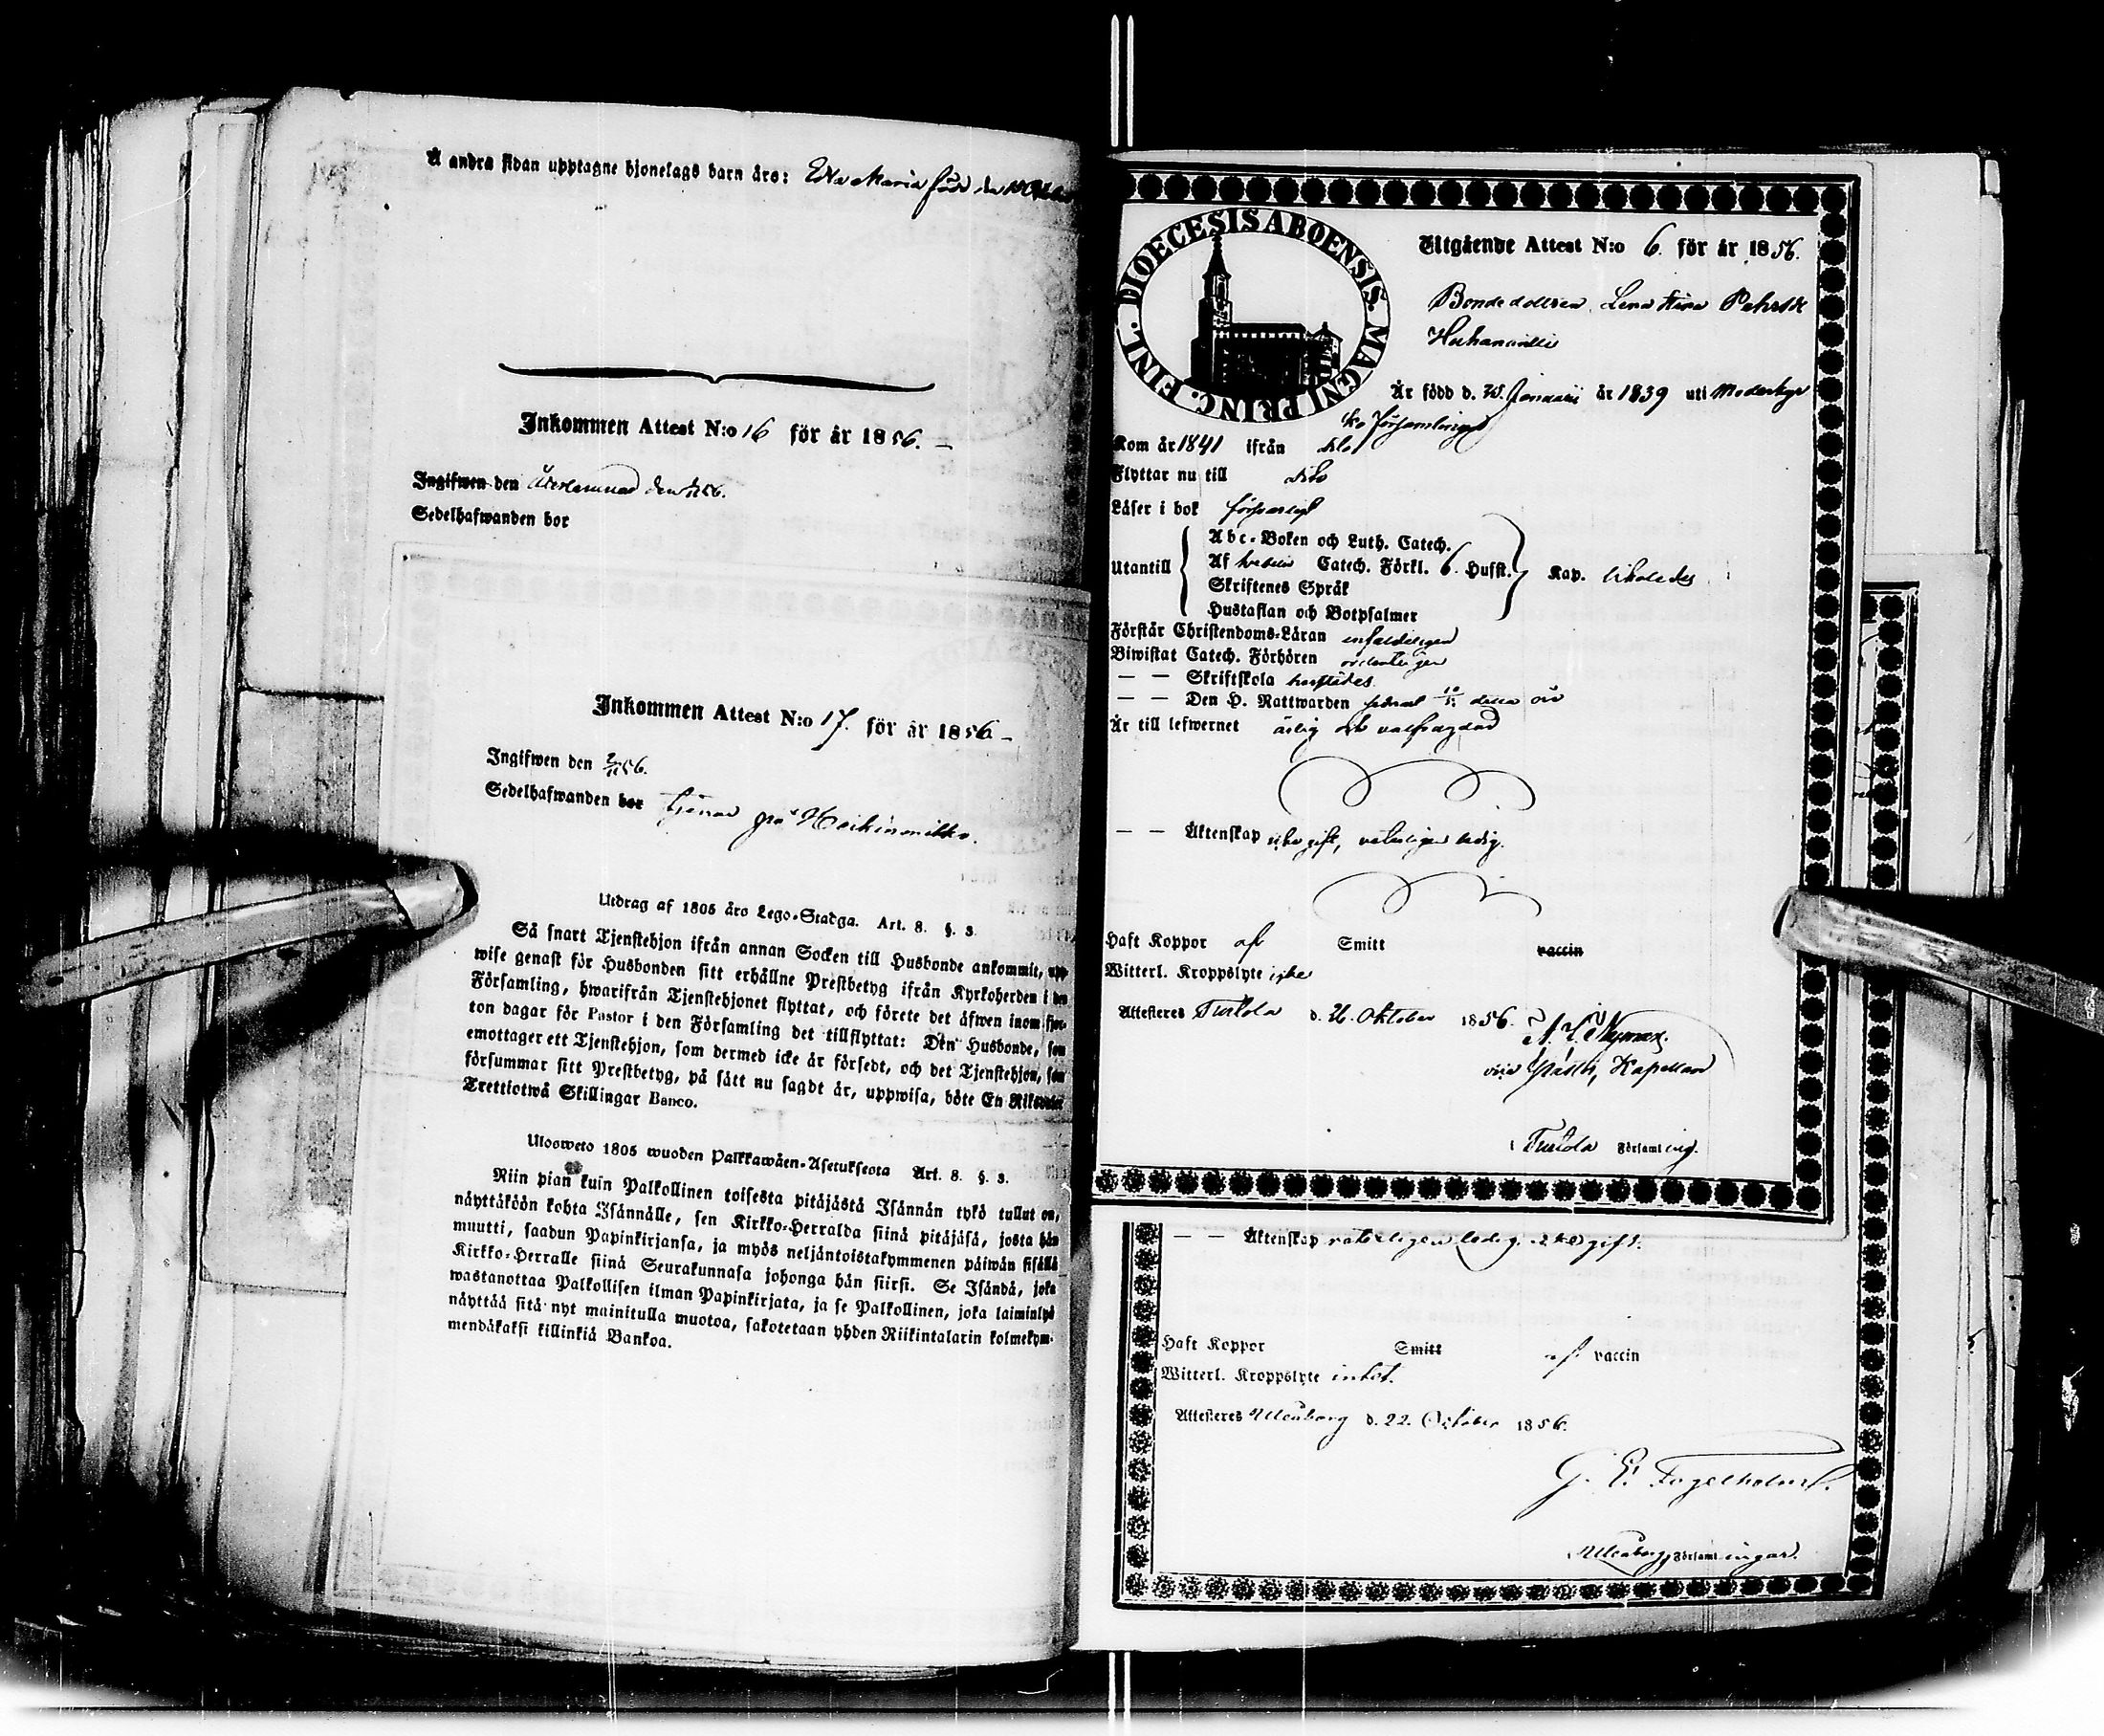 Å andra sidan upptagne hjonelags barn äro: Maria född den
Inkommen Attest N:o 16 för år 1856. —
Ingifwen den Återlemnad den 56.
Sedelhafwanden bor
Inkommen Attest N:o 17. för år 1856 —
Ingifwen den 56.
Sedelhafwanden bor tjenar på Heikinmikko.
Utdrag af 1805 års Lego-Stadga. Art. 8. §. 3.
Så snart Tjenstehjon ifrån annan Socken till Husbonde ankommit, upp-
wise genast för Husbonden sitt erhållne Prestbetyg ifrån Kyrkoherden i den
Församling, hwarifrån Tjenstehjonet flyttat, och förete det äfwen inom fjor-
ton dagar för Pastor i den Församling det tillflyttat: Den Husbonde, som
emottager ett Tjenstehjon, som dermed icke är försedt, och det Tjenstehjon, som
försummar sitt Prestbetyg, på sätt nu sagdt är, uppwisa, böte En Riksdaler
Trettiotwå Skillingar Banco.
Ulosweto 1805 wuoden Palkkawäen-Asetuksesta Art. 8. §. 3.
Niin pian kuin Palkollinen toisesta pitäjästä Isännän tykö tullut on,
näyttäköön kohta Isännälle, sen Kirkko-Herralda siinä pitäjäsä, josta hän
muutti, saadun Papinkirjansa, ja myös neljäntoistakymmenen päiwän sisällä
Kirkko-Herralle siinä Seurakunnasa johonga hän siirsi. Se Isändä, joka
wastanottaa Palkollisen ilman Papinkirjata, ja se Palkollinen, joka laiminlyö
näyttää sitä nyt mainitulla muotoa, sakotetaan yhden Riikintalarin kolmekym-
mendäkaksi killinkiä Bankoa.
FINL. DIOECESIS ABOENSIS. MAGNI PRINC.
Utgående Attest N:o 6. för år 1856.
Bondedottren Lena Stina
Är född d. Januarii år 1839 uti Moderkyr
ko Församlingen
Kom år 1841 ifrån
Flyttar nu till
Läser i bok försvarligt
Utantill
Abc-Boken och Luth. Catech.
Af Svebelii Catech. Förkl. 6. Husst.
Skriftenes Språk
Hustaflan och Botpsalmer
Kap. likaledes
Förstår Christendoms-Läran enfaldeligen
Biwistat Catech. Förhören ordenteligen
— — Skriftskola härstädes.
— — Den H. Nattwarden detta år
Är till lefwernet ärlig och välfrägdad
— — Äktenskap icke gift, veterligen ledig.
Haft Koppor af Smitt vaccin
Witterl. Kroppslyte icke
Attesteres Tuulola d. 26. Oktober 1856.
Kapellan
Församling.
— — Äktenskap veterligen ledig. gift.
Haft Koppor Smitt af vaccin
Witterl. Kroppslyte intet.
Attesteres Uleåborg d. 22. October 1856.
G. E. Fogelholm.
Uleåborgs Församlingar.